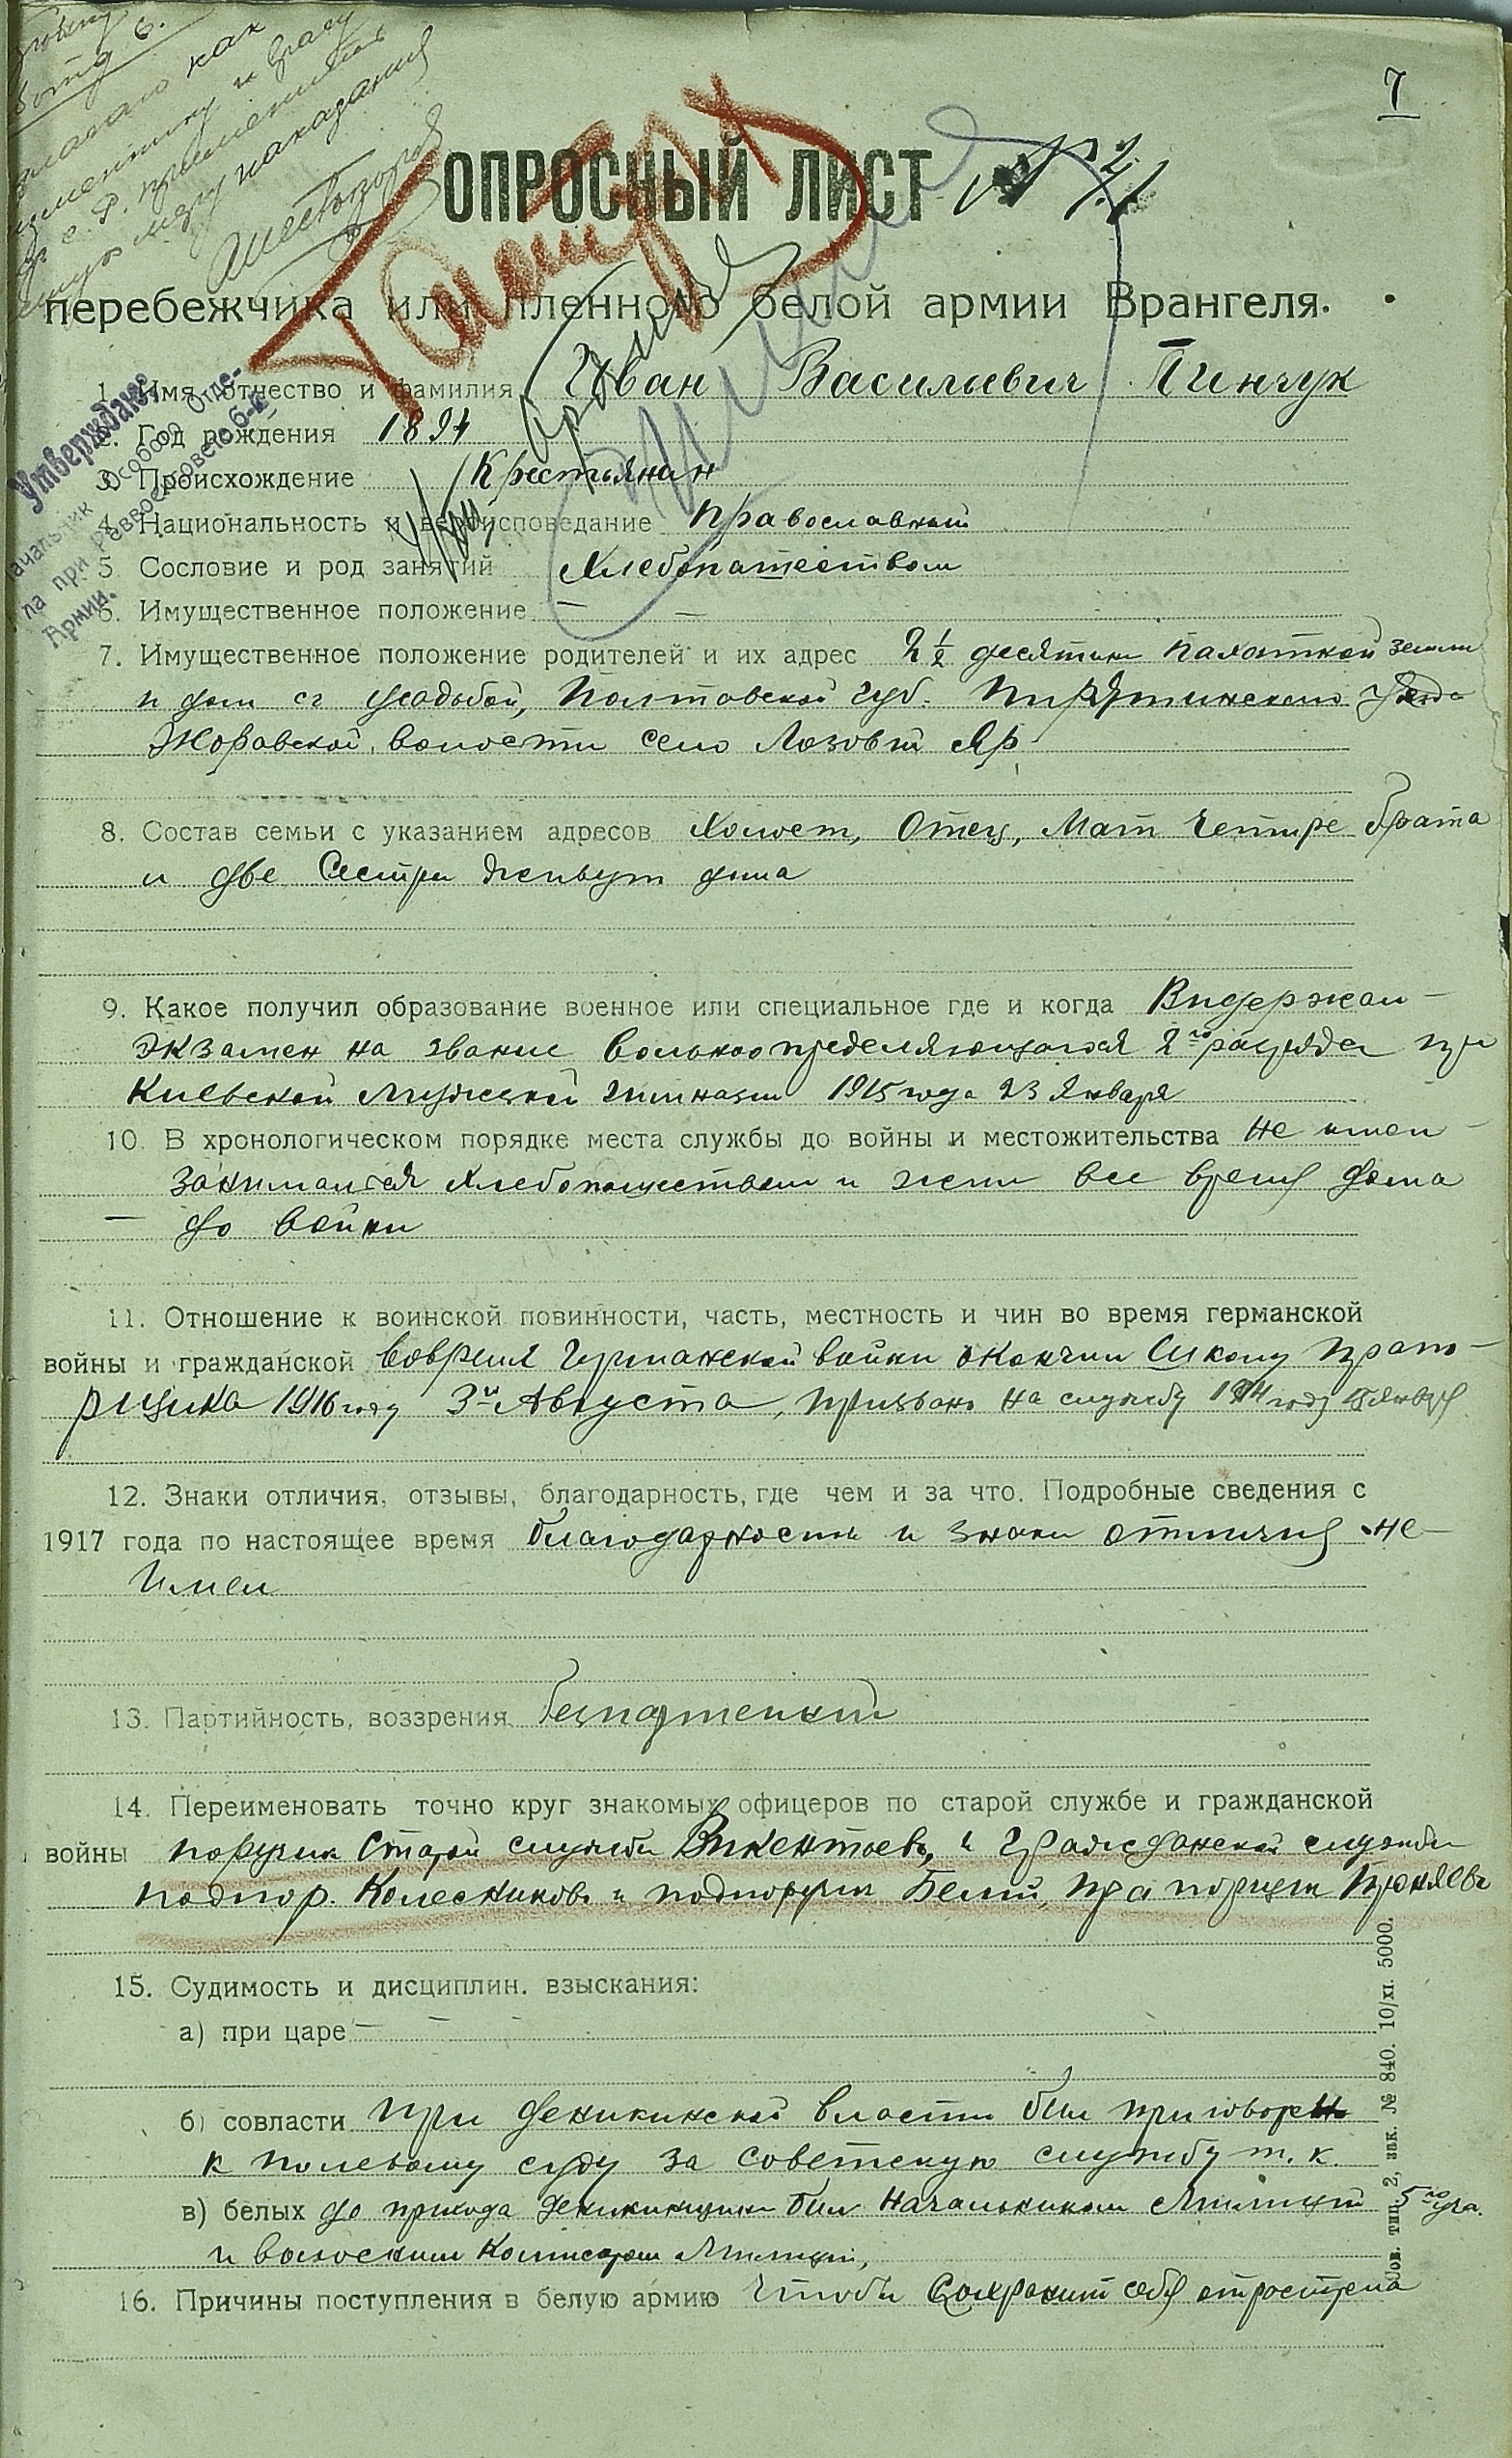 7
ОПРОСНЫЙ ЛИСТ № 21
перебежчика или пленного белой армии Врангеля.
Утверждаю
Начальник Особого Отде-
ла при Реввоенсовете 6-й
Армии.
1. Имя, отчество и фамилия Иван Васильевич Пинчук
2. Год рождения 1894
3. Происхождение Крестьянин
4. Национальность и вероисповедание Православный
5 Сословие и род занятий Хлебопашеством
6. Имущественное положение — —
7. Имущественное положение родителей и их адрес 2 1/2 десятин пахотной земли
и дом с усадьбой, Полтавской губ. Пирятинского уезда
Жоравской волости село Лозовий Яр
8. Состав семьи с указанием адресов Холост, Отец, Мат четире брата
и две Сестри живут дома
9. Какое получил образование военное или специальное где и когда Видержал
экзамен на звание вольноопределяющагося 2го разряда при
Киевской гимназии 1915 года 23 Января
10. В хронологическом порядке места службы до войны и местожительства не имел
занимался хлебопашеством и жил все время дома
— до войни
11. Отношение к воинской повинности, часть, местность и чин во время германской
войны и гражданской вовремя Германской войни окончил Школу прапо-
рщика 1916 году 3-и Августа, призван на службу
12. Знаки отличия, отзывы, благодарность, где чем и за что. Подробные сведения с
1917 года по настоящее время благодарности и знаки отличия не
имел
13. Партийность, воззрения
14. Переименовать точно круг знакомых офицеров по старой службе и гражданской
войны поручик Старой служби Викентьевъ, и Гражданской служби
подпор. Колесниковъ и подпоручик Белий, прапорщик
15. Судимость и дисциплин. взыскания:
а) при царе — — -
б) совласти при деникинской власти бил приговорен
к полевому суду за советскую службу т. к.
в) белых до прихода деникинцин бил Начальником Милиции 5го уча.
и волоским Комисаром Милиции,
16. Причины поступления в белую армию чтоби Сохранит себя от ростртела
тип. 2, зак. № 840. 10/xi. 5000.